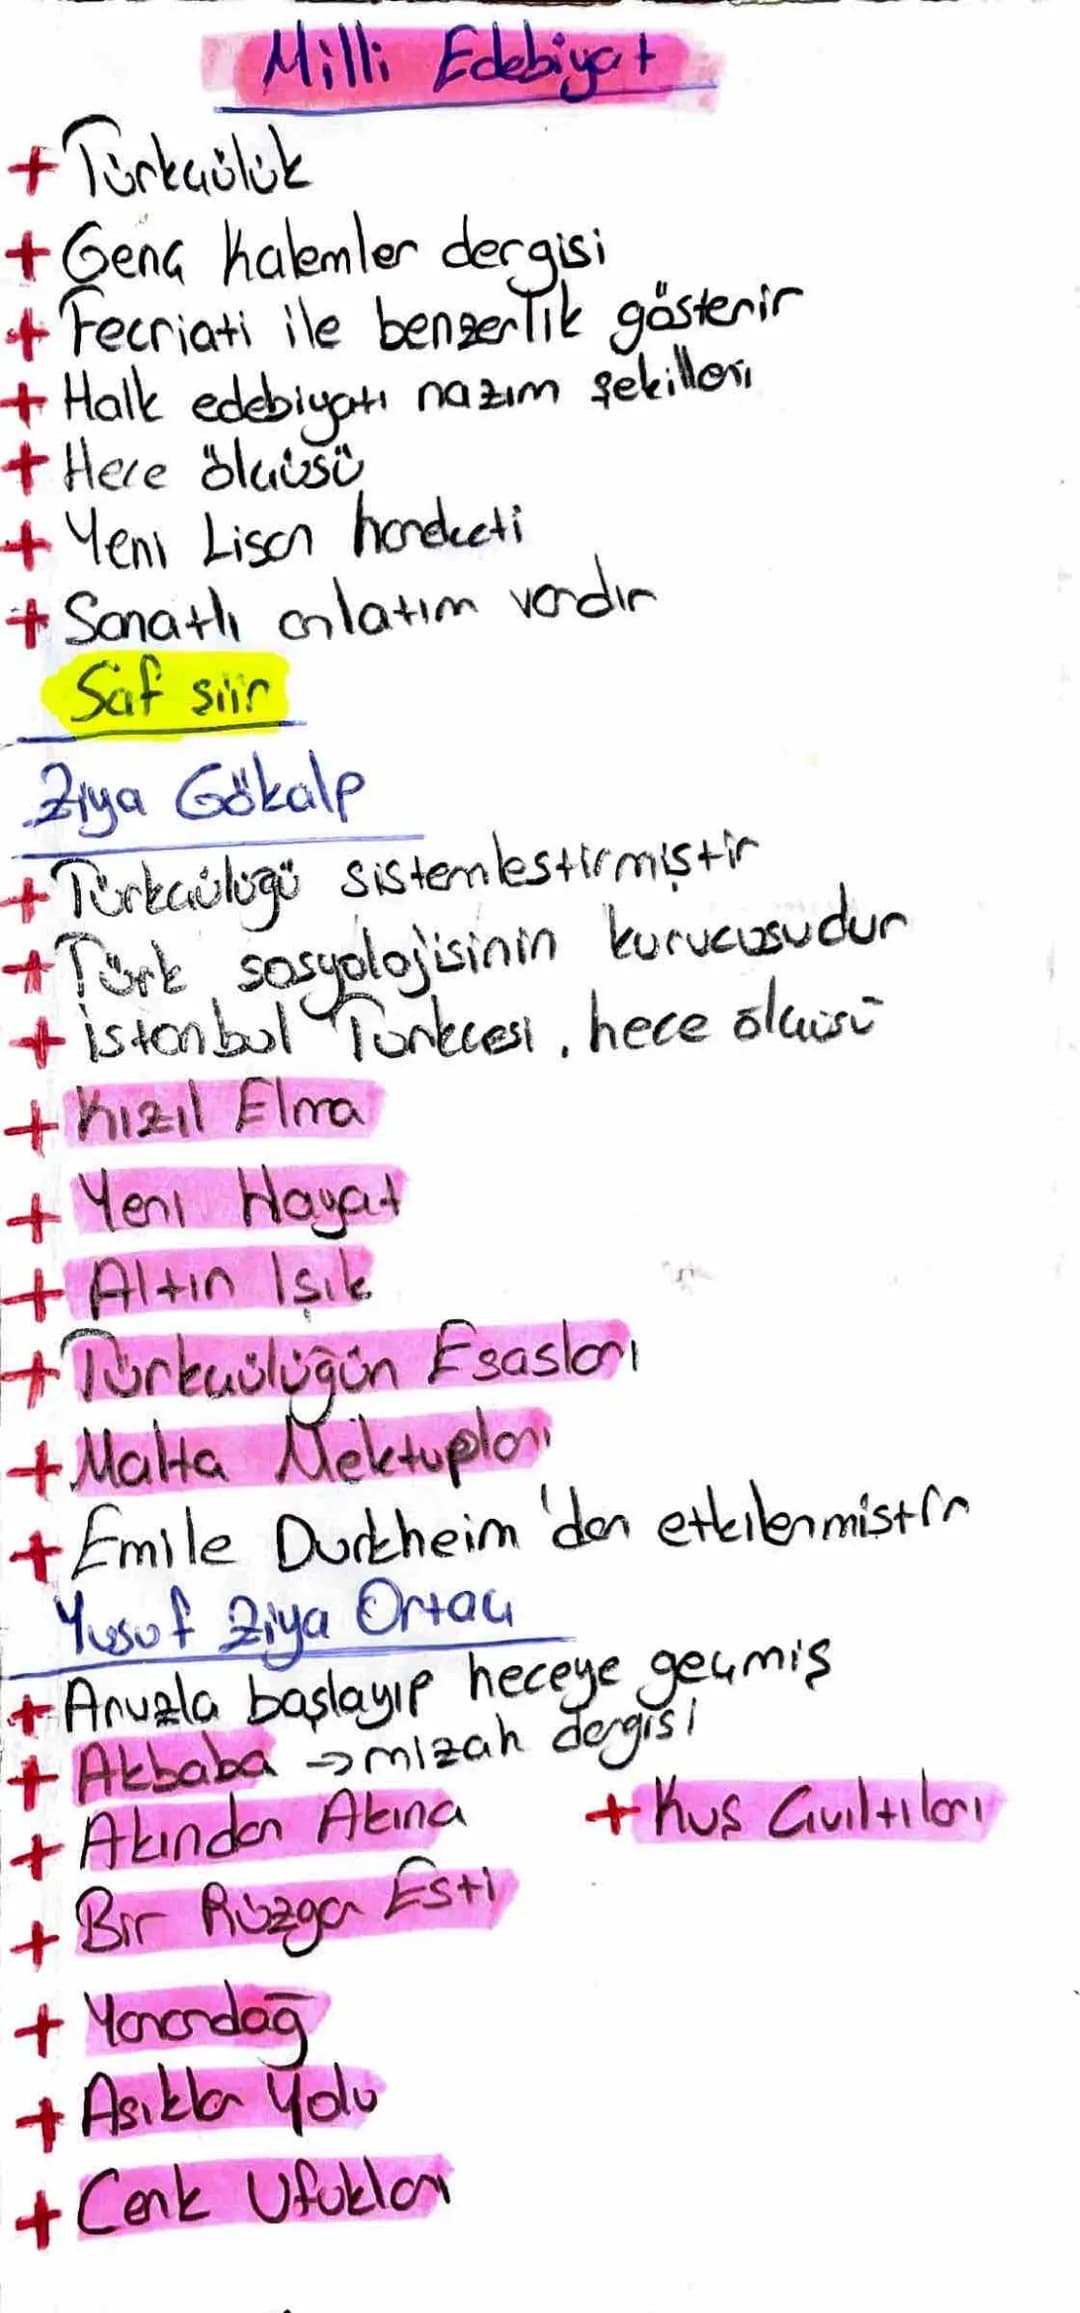 Milli Edebiyat
+ Türkçülük
+ Genç Kalemler dergisi
+ Fecriati ile benzerlik gösterir
+ Halk edebiyatı nazım şekilleri
+ Hece ölçüsü
+ Yeni Lisan hareketi
+ Sanatlı anlatım vardır
Saf şiir
Ziya Gökalp
+ Türkçülüğü sistemlestirmiştir
+ Türk sosyolojisinin kurucusudur
+ İstanbul Türkcesi, hece ölçüsü
+ Kızıl Elma
+ Yeni Hayat
+ Altın Işık
+ Türkçülüğün Esasları
+ Malta Mektupları
+ Emile Durkheim'den etkilenmiştir
Yusuf Ziya Ortaç
+ Aruzla başlayıp heceye geçmiş
+ Akbaba → mizah dergisi
+ Akından Akına + Kuş Cıvıltıları
+ Bir Rüzgar Esti
+ Yanardağ
+ Asıklar Yolu
+ Cenk Ufukları